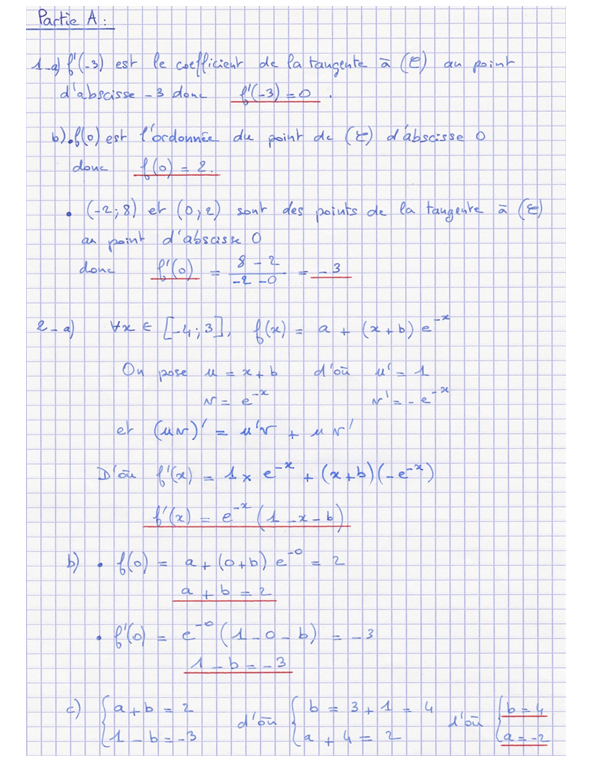 Partie A :
1-a) f'(-3) est le coefficient de la tangente à (C) au point
d'abscisse -3 donc f'(-3) = 0 .
b) • f(0) est l'ordonnée du point de (C) d'abscisse 0
donc f(0) = 2.
• (-2; 8) et (0; 2) sont des points de la tangente à (C)
au point d'abscisse 0
donc f'(0) = (8 - 2)/(-2 - 0) = -3
2-a) ∀x ∈ [-4; 3], f(x) = a + (x+b) e^{-x}
On pose u = x+b d'où u' = 1
v = e^{-x} v' = -e^{-x}
et (uv)' = u'v + uv'
D'où f'(x) = 1 × e^{-x} + (x+b)(-e^{-x})
f'(x) = e^{-x} (1 - x - b)
b) • f(0) = a + (0+b) e^{-0} = 2
a + b = 2
• f'(0) = e^{-0} (1 - 0 - b) = -3
1 - b = -3
c) { a + b = 2 d'où { b = 3 + 1 = 4 d'où { b = 4
{ 1 - b = -3 { a + 4 = 2 { a = -2